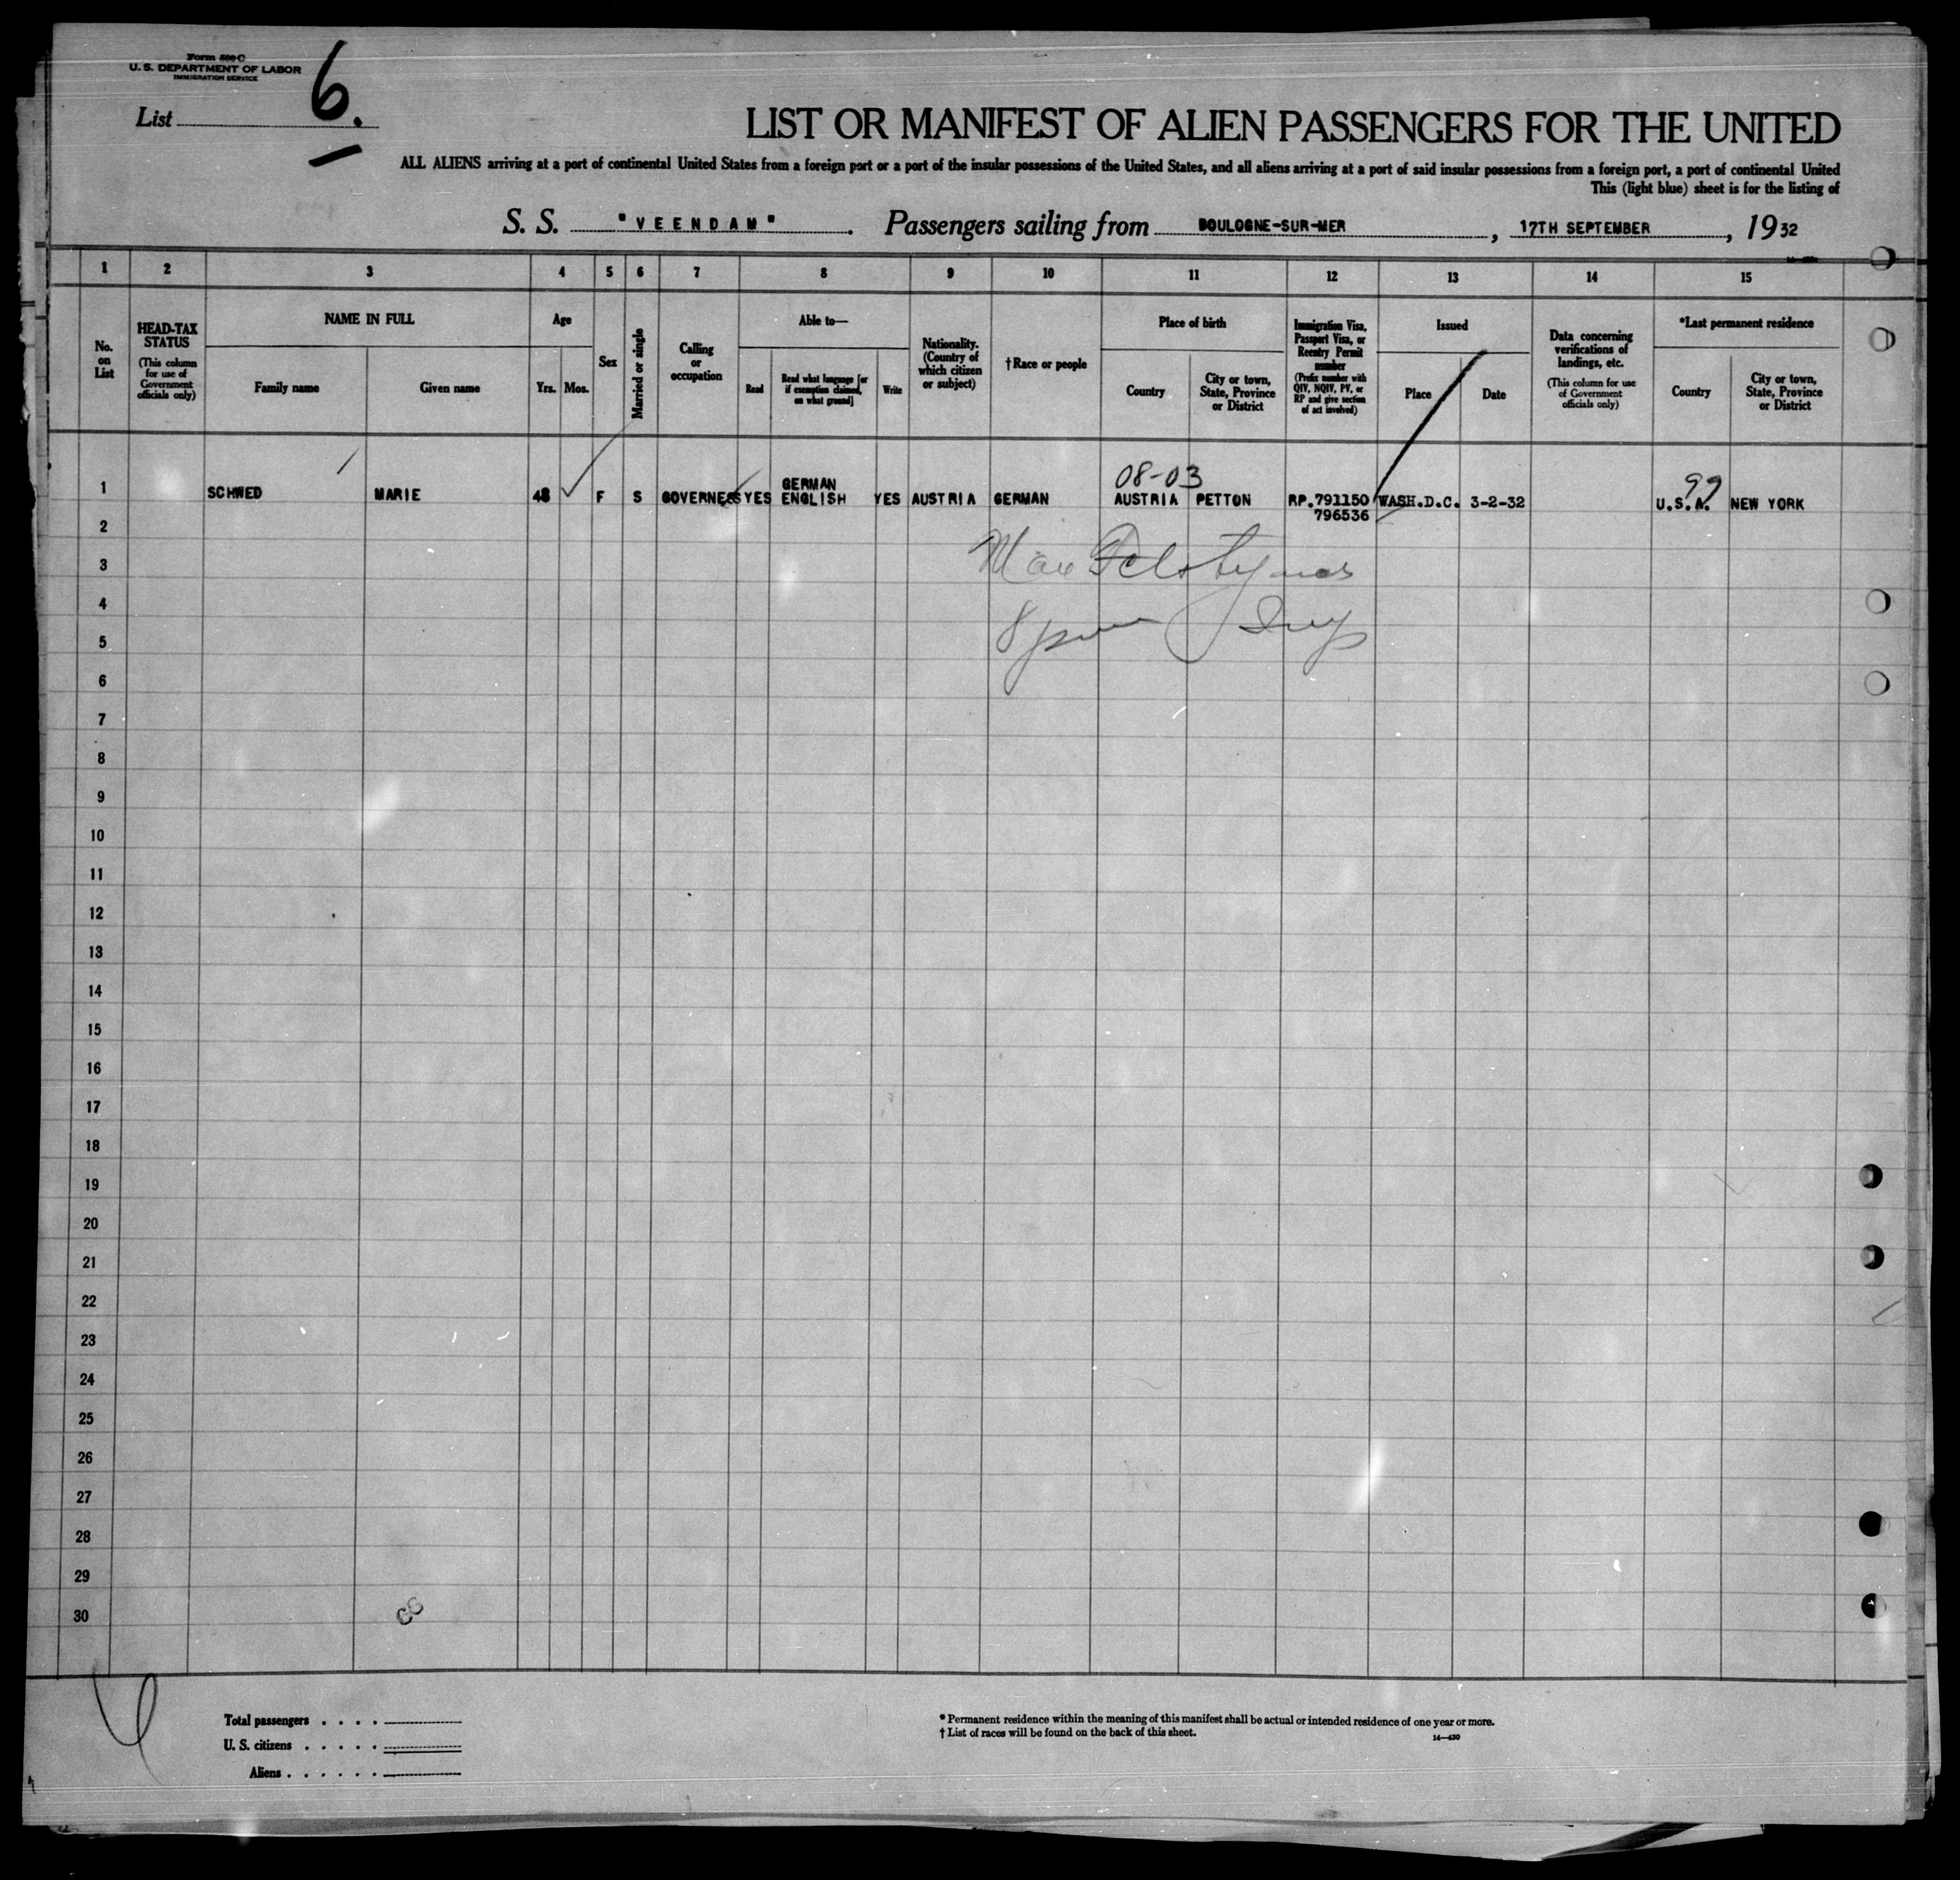 Form 500 C
U. S. DEPARTMENT OF LABOR
IMMIGRATION SERVICE
List 6.
LIST OR MANIFEST OF ALIEN PASSENGERS FOR THE UNITED
ALL ALIENS arriving at a port of continental United States from a foreign port or a port of the insular possessions of the United States, and all aliens arriving at a port of said insular possessions from a foreign port, a port of continental United
This (light blue) sheet is for the listing of
S. S. "VEENDAM". Passengers sailing from BOULOGNE-SUR-MER, 17TH SEPTEMBER, 1932
1 2 3 4 5 6 7 8 9 10 11 12 13 14 15
No. on List
HEAD-TAX STATUS
(This column for use of Government officials only)
NAME IN FULL
Family name
Given name
Age
Yrs.
Mos.
Sex
Married or single
Calling or occupation
Able to—
Read
Read what language [or if exemption claimed, on what ground]
Write
Nationality. (Country of which citizen or subject)
†Race or people
Place of birth
Country
City or town, State, Province or District
Immigration Visa, Passport Visa, or Reentry Permit number
(Prefix number with QIV, NQIV, PV, or RP and give section of act involved)
Issued
Place
Date
Data concerning verifications of landings, etc.
(This column for use of Government officials only)
*Last permanent residence
Country
City or town, State, Province or District
08-03 99
1 SCHWED MARIE 48 F S GOVERNESS YES GERMAN ENGLISH YES AUSTRIA GERMAN AUSTRIA PETTON RP.791150 WASH.D.C. 3-2-32 U.S.A. NEW YORK
2 796536
3
4
5
6
7
8
9
10
11
12
13
14
15
16
17
18
19
20
21
22
23
24
25
26
27
28
29
30
Total passengers . . . .
U. S. citizens . . . . .
Aliens . . . . . .
* Permanent residence within the meaning of this manifest shall be actual or intended residence of one year or more.
† List of races will be found on the back of this sheet.
14—430